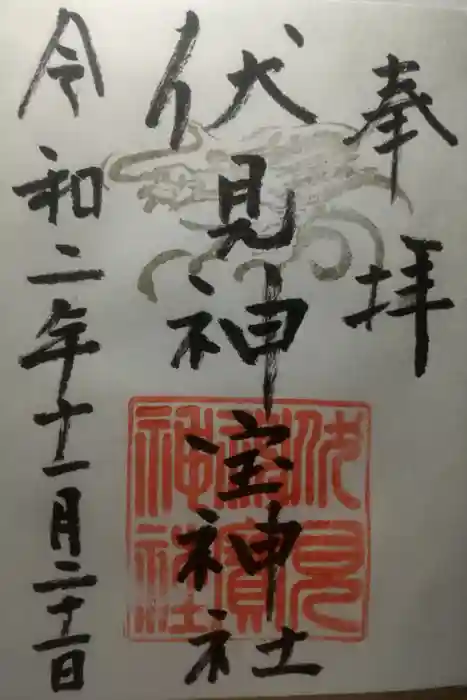 奉拝
伏見神宝神社
伏見神寶神社
令和二年十一月二十一日